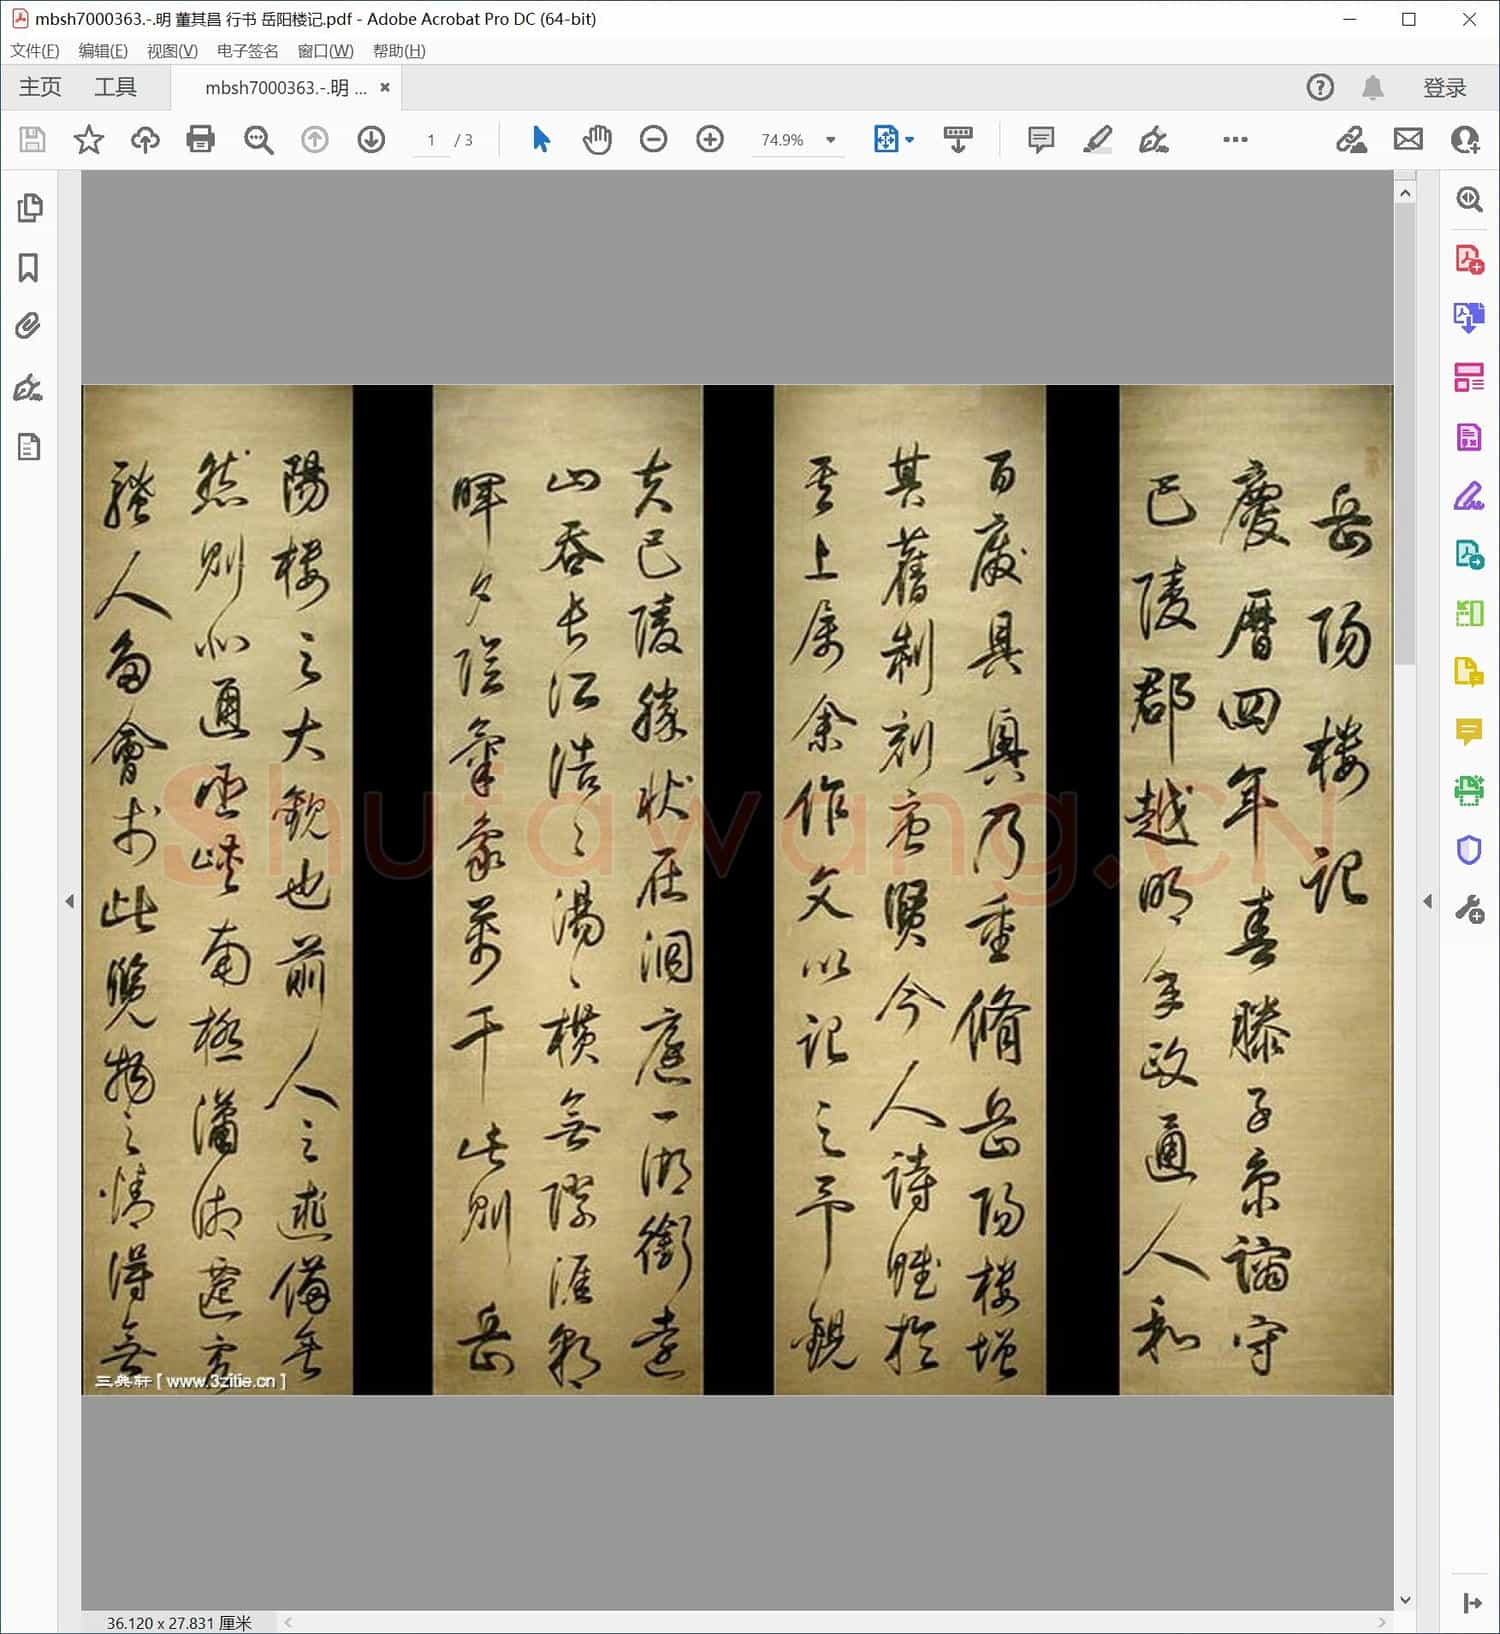 mbsh7000363.-.明 董其昌 行书 岳阳楼记.pdf - Adobe Acrobat Pro DC (64-bit)
文件(F) 编辑(E) 视图(V) 电子签名 窗口(W) 帮助(H)
主页 工具 mbsh7000363.-.明 ... 登录
1 / 3 74.9%
岳陽樓記
慶曆四年春滕子京謫守
巴陵郡越明年政通人和
百廢具興乃重脩岳陽樓增
其舊制刻唐賢今人詩賦於
其上属余作文以記之予觀
夫巴陵勝狀在洞庭一湖銜遠
山吞長江浩〻湯〻橫無際涯朝
暉夕陰氣象萬千此則岳
陽樓之大觀也前人之述備矣
然則北通巫峽南極瀟湘遷客
騷人多會於此覽物之情得無
Shufawang.CN
三典轩 [ www.3zitie.cn ]
36.120 x 27.831 厘米